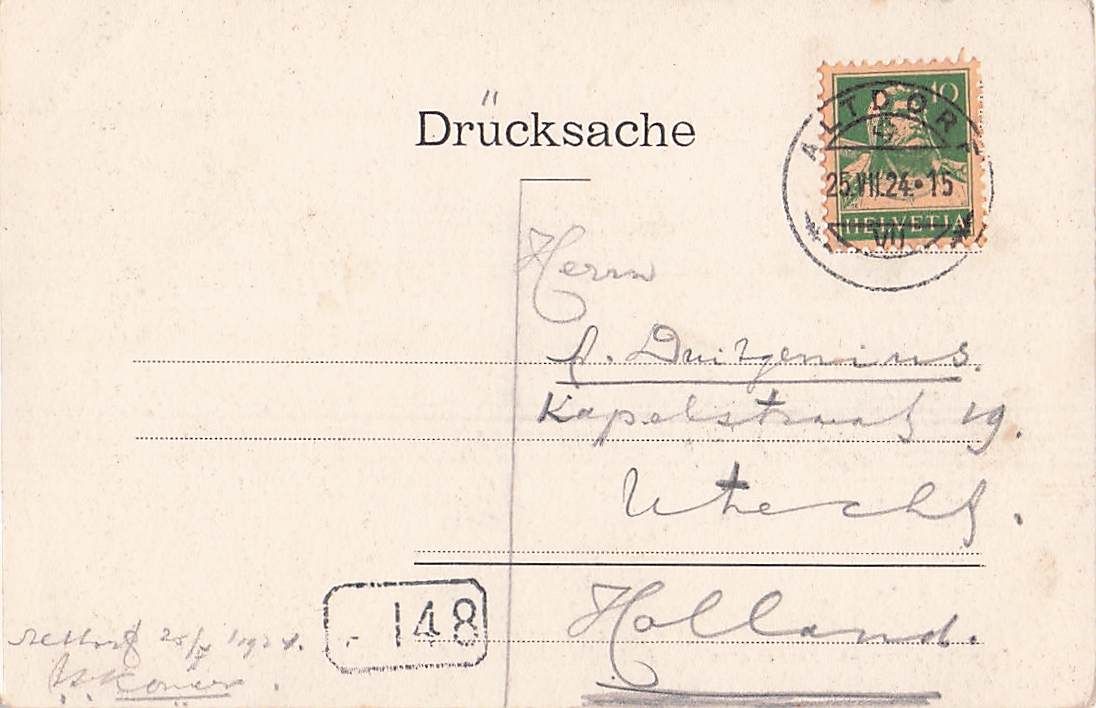 Drücksache
10
ALTDORF
25.VII.24.15
HELVETIA
VII
Herrn
Kapelstraat 19.
Utrecht.
Holland.
148
Altdorf 25/7 1924.